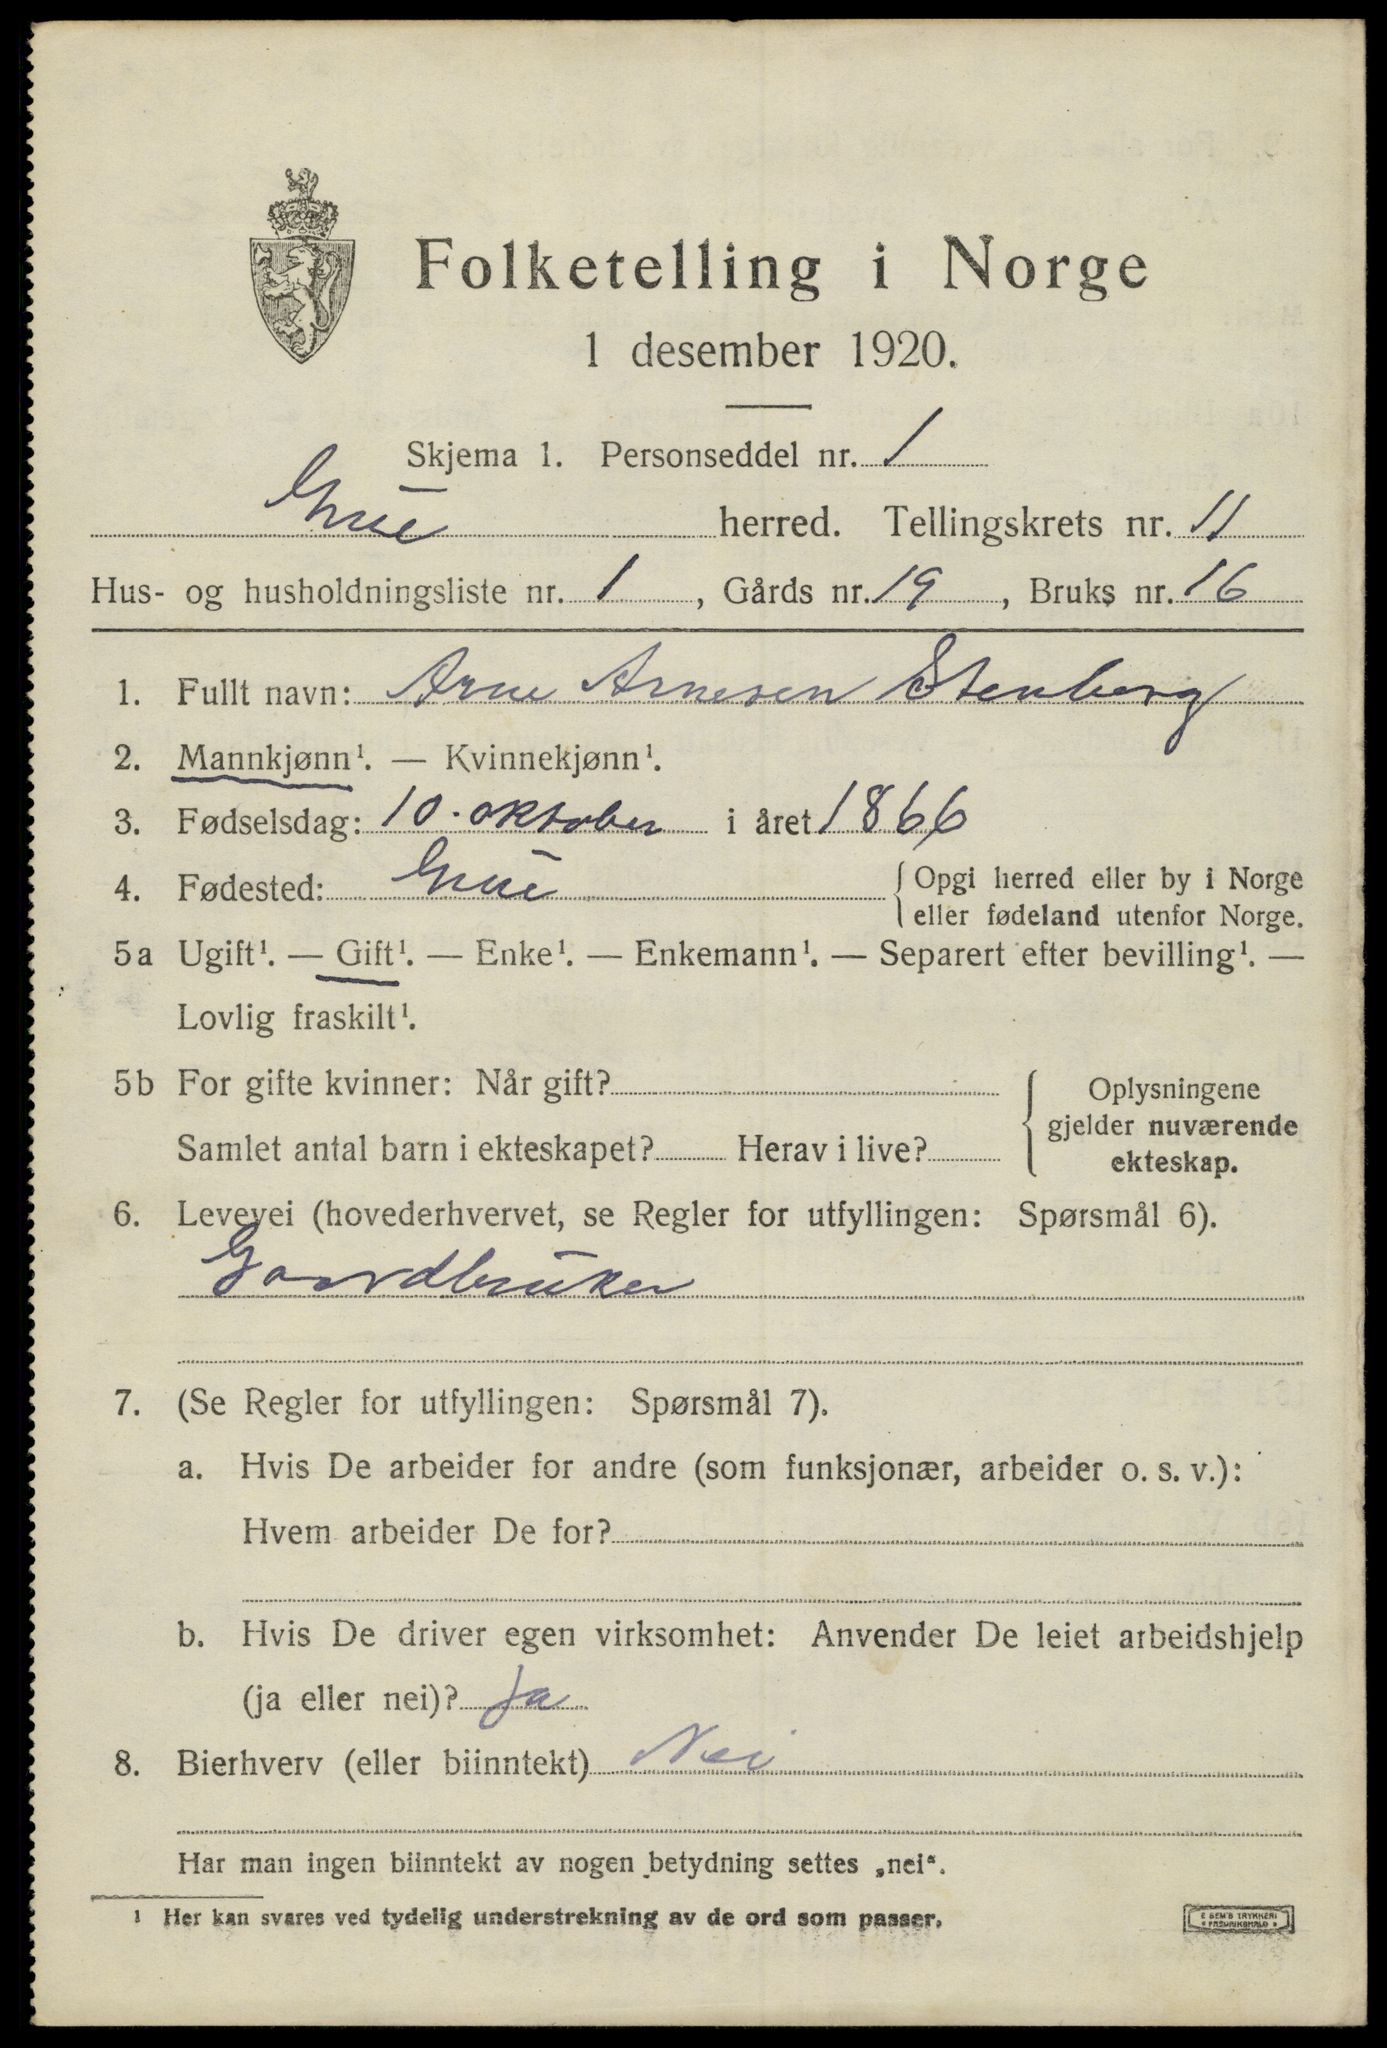 Folketelling i Norge
1 desember 1920.
Skjema 1. Personseddel nr. 1
Grue herred. Tellingskrets nr. 11
Hus- og husholdningsliste nr. 1, Gårds nr. 19, Bruks nr. 16
1. Fullt navn: Arne Arnesen Stenberg
2. Mannkjønn¹. — Kvinnekjønn¹.
3. Fødselsdag: 10. oktober i året 1866
4. Fødested: Grue { Opgi herred eller by i Norge
eller fødeland utenfor Norge.
5a Ugift¹. — Gift¹. — Enke¹. — Enkemann¹. — Separert efter bevilling¹. —
Lovlig fraskilt¹.
5b For gifte kvinner: Når gift? { Oplysningene
gjelder nuværende
Samlet antal barn i ekteskapet? Herav i live? ekteskap.
6. Levevei (hovederhvervet, se Regler for utfyllingen: Spørsmål 6).
Gaardbruker
7. (Se Regler for utfyllingen: Spørsmål 7).
a. Hvis De arbeider for andre (som funksjonær, arbeider o. s. v.):
Hvem arbeider De for?
b. Hvis De driver egen virksomhet: Anvender De leiet arbeidshjelp
(ja eller nei)? Ja
8. Bierhverv (eller biinntekt) Nei
Har man ingen biinntekt av nogen betydning settes „nei“.
¹ Her kan svares ved tydelig understrekning av de ord som passer.
E SEM'S TRYKKERI
FREDRIKSHALD